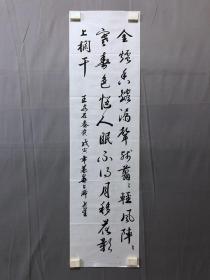 金爐香燼漏聲殘翦々輕風陣々
寒春色惱人眠不得月移花影
上欄干
王安石春夜 戊寅年暮春